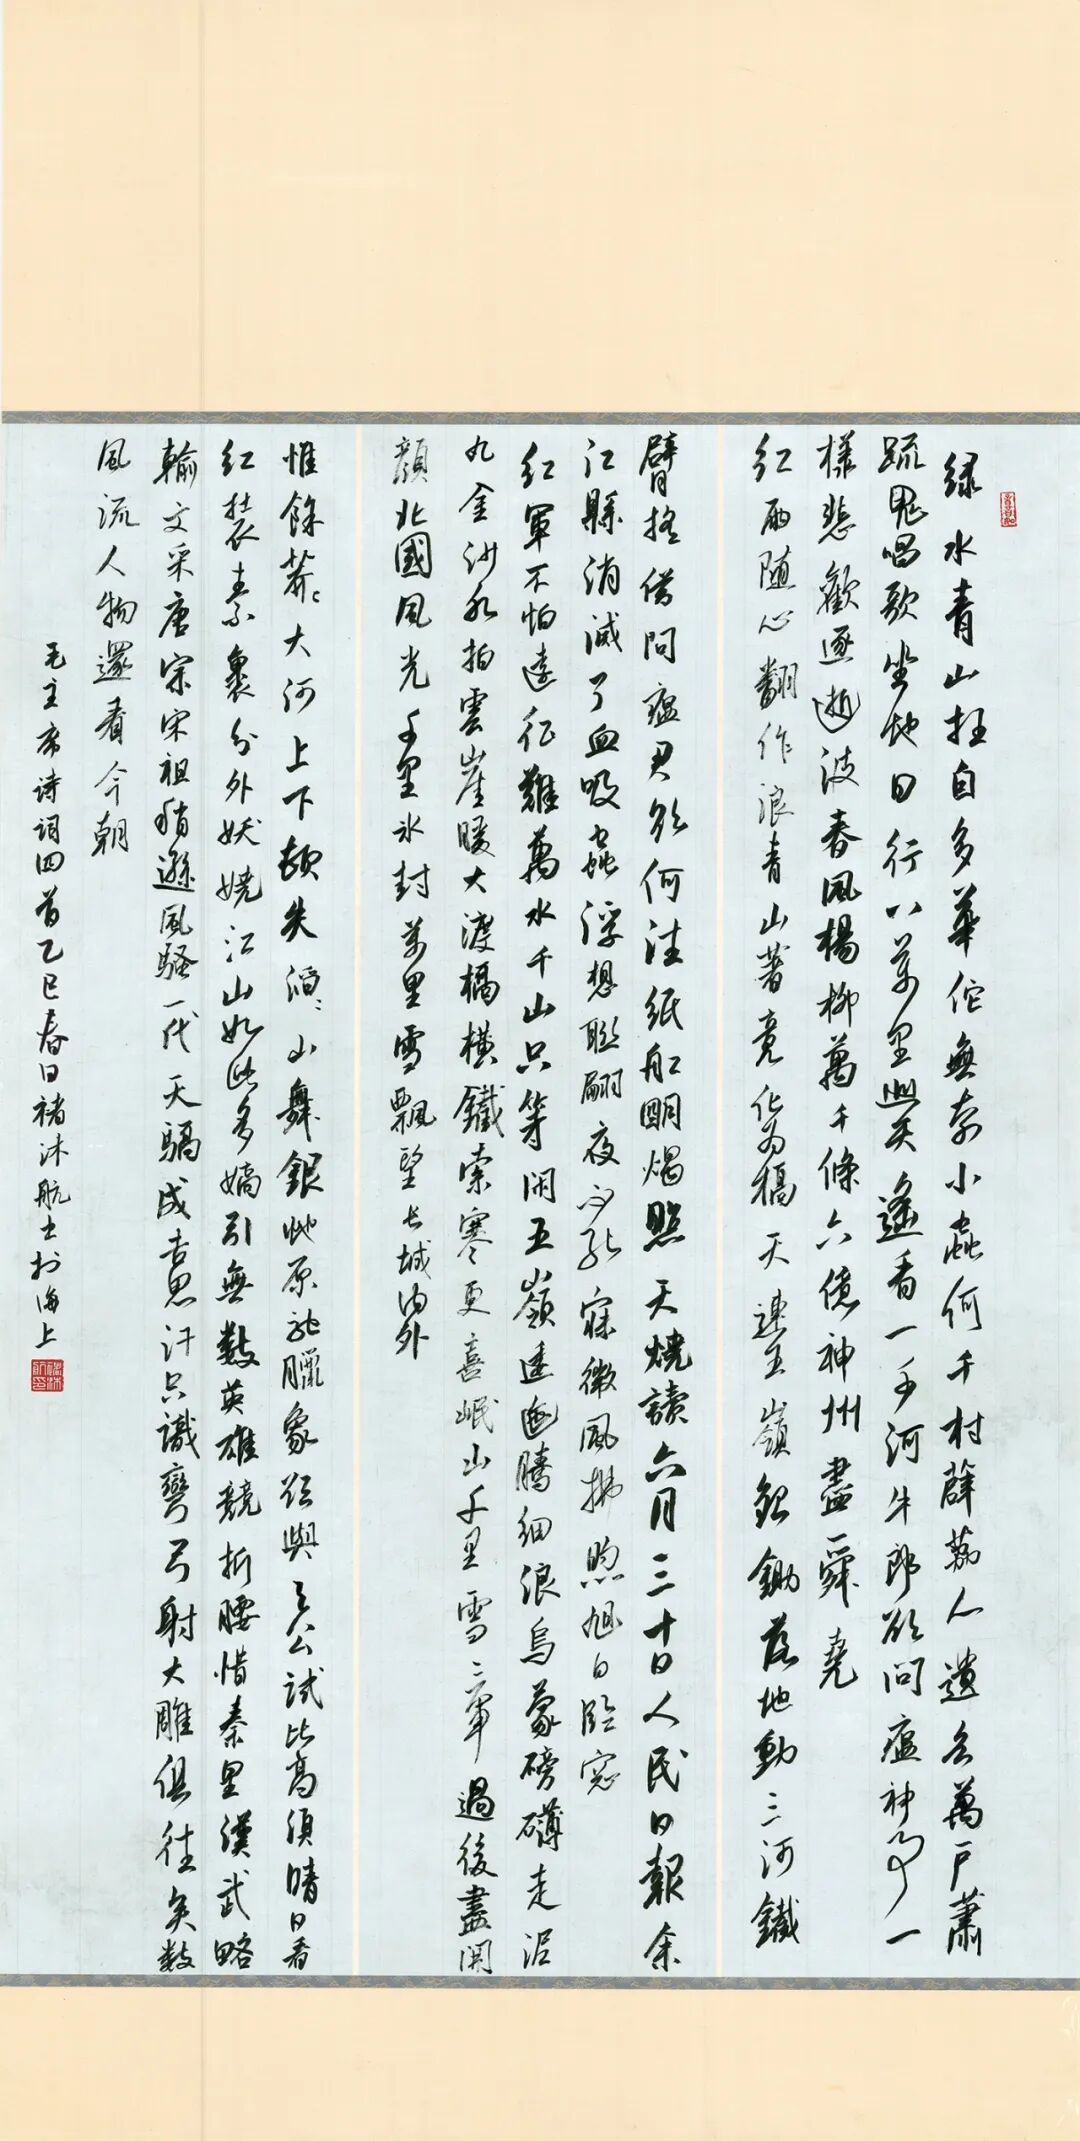 绿水青山枉自多華佗無奈小蟲何千村薜荔人遺矢萬戶蕭
疏鬼唱歌坐地日行八萬里巡天遙看一千河牛郎欲問瘟神事一
樣悲歡逐逝波春風楊柳萬千條六億神州盡舜堯
红雨随心翻作浪青山著意化为橋天連五嶺銀鋤落地動三河鐵
臂摇借問瘟君欲何往纸船明燭照天燒讀六月三十日人民日報余
江縣消滅了血吸蟲浮想聯翩夜不能寐微風拂煦旭日臨窓
红軍不怕遠征難萬水千山只等闲五嶺逶迤騰细浪烏蒙磅礴走泥
丸金沙水拍雲崖暖大渡橋横鐵索寒更喜岷山千里雪三軍過後盡開
顏北國風光千里冰封萬里雪飄望长城内外
惟餘莽〻大河上下頓失滔〻山舞銀蛇原驰臘象欲與天公試比高須晴日看
红装素裹分外妖娆江山如此多嬌引無數英雄競折腰惜秦皇漢武略
輸文采唐宗宋祖稍遜風騷一代天驕成吉思汗只識彎弓射大雕俱往矣數
風流人物還看今朝
毛主席诗词四首乙巳春日褚沐航书於海上